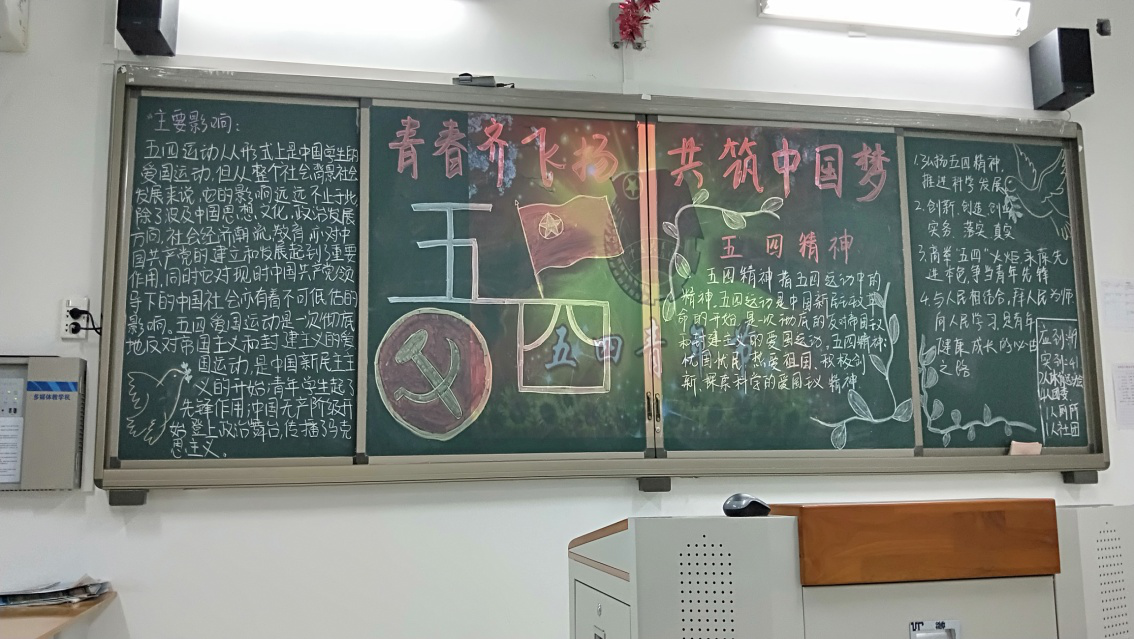 主要影响：
五四运动从形式上是中国学生的
爱国运动，但从整个社会背景社会
发展来说，它的影响远远不止于此
除了波及中国思想，文化，政治发展
方向，社会经济潮流，教育，亦对中
国共产党的建立和发展起到了重要
作用，同时它对现时中国共产党领
导下的中国社会亦有着不可低估的
影响。五四爱国运动是一次彻底
地反对帝国主义和封建主义的爱
国运动，是中国新民主主
义的开始；青年学生起了
先锋作用；中国无产阶级开
始登上政治舞台，传播了马克
思主义。
青春齐飞扬 共筑中国梦
五四
五四青年节
五四精神
五四精神指五四运动中的
精神。五四运动是中国新民主义革
命的开始，是一次彻底的反对帝国主义
和封建主义的爱国运动，五四精神：
忧国忧民，热爱祖国，积极创
新，探索科学的爱国主义精神
1.弘扬五四精神，
推进科学发展
2.创新，创造，创业
实务，落实，真实
3.高举“五四”火炬，永葆先
进本色，争当青年先锋
4.与人民相结合，拜人民为师
向人民学习，是青年
健康成长的必由
之路
应到:
实到:41
1人
1人国
1人厕所
1人社团
多媒体教学机